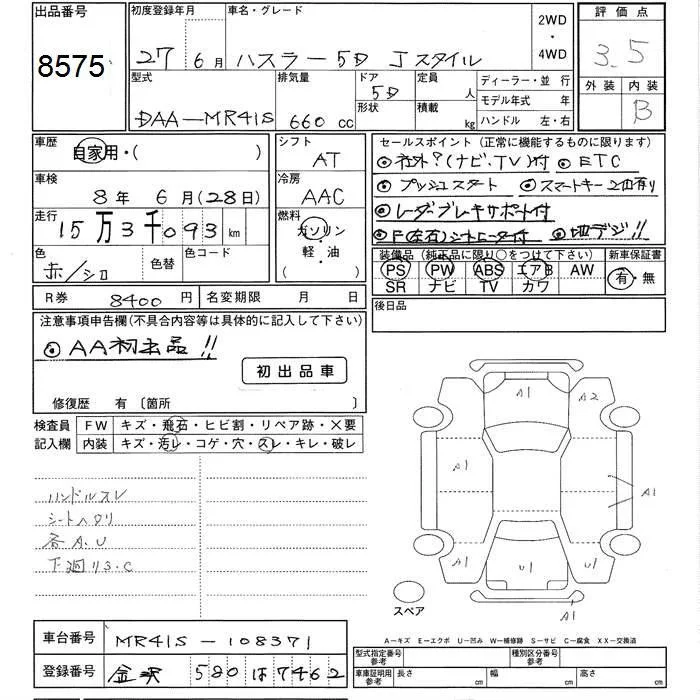 出品番号 初度登録年月 車名・グレード 2WD・4WD 評価点
8575 27年 6月 ハスラー 5D Jスタイル 3.5
型式 排気量 ドア 形状 定員 人 積載 kg ディーラー・並行 外装 内装
DAA-MR41S 660cc 5D モデル年式 年 B
ハンドル 左・右
車歴 自家用・( ) シフト AT セールスポイント (正常に機能するものに限ります)
◎社外?(ナビ.TV)付 ◎ETC
車検 8年 6月(28日) 冷房 AAC ◎プッシュスタート ◎スマートキー2コ有り
走行 15万3千093km 燃料 ガソリン・軽・油 ◎レーダーブレーキサポート付
◎F(左右)シートヒーター付 ◎地デジ!!
色 赤/シロ 色替 色コード 装備品 (純正品に限り○をつけて下さい) 新車保証書
PS PW ABS エアB AW 有・無
SR ナビ TV カワ
R券 8400円 名変期限 月 日 後日品
注意事項申告欄(不具合内容等は具体的に記入して下さい)
◎AA初出品!!
初出品車
修復歴 有 〔箇所 〕
検査員 FW キズ・飛石・ヒビ割・リペア跡・X要
記入欄 内装 キズ・汚レ・コゲ・穴・スレ・キレ・破レ
A1 A2
A1 A1
ハンドルスレ
シートヘタリ
各A.U
下廻りS.C
A1 U1 U1
A1
スペア
A-キズ E-エクボ U-凹み W-補修跡 S-サビ C-腐食 XX-交換済
車台番号 MR41S-108371
型式指定番号 参考 種別区分番号 参考
登録番号 金沢 580 は 7462
車庫証明用 参考 長さ cm 幅 cm 高さ cm